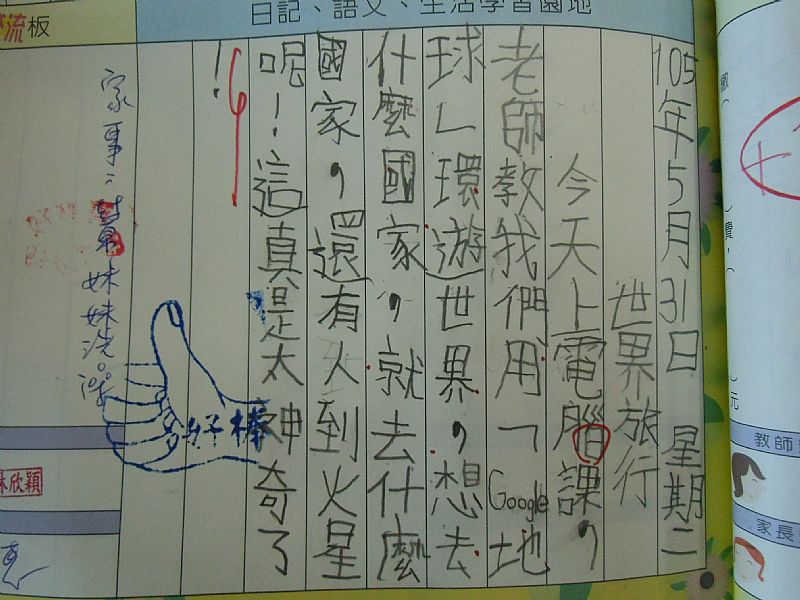 日記、語文、生活學習園地
流板
105年5月31日 星期二
世界旅行
今天上電腦課,
老師教我們用「Google地
球」環遊世界,想去
什麼國家,就去什麼
國家,還有人到火星
呢!這真是太神奇了
!
好棒
家事:幫妹妹洗澡。
林欣穎
教師
家長
元